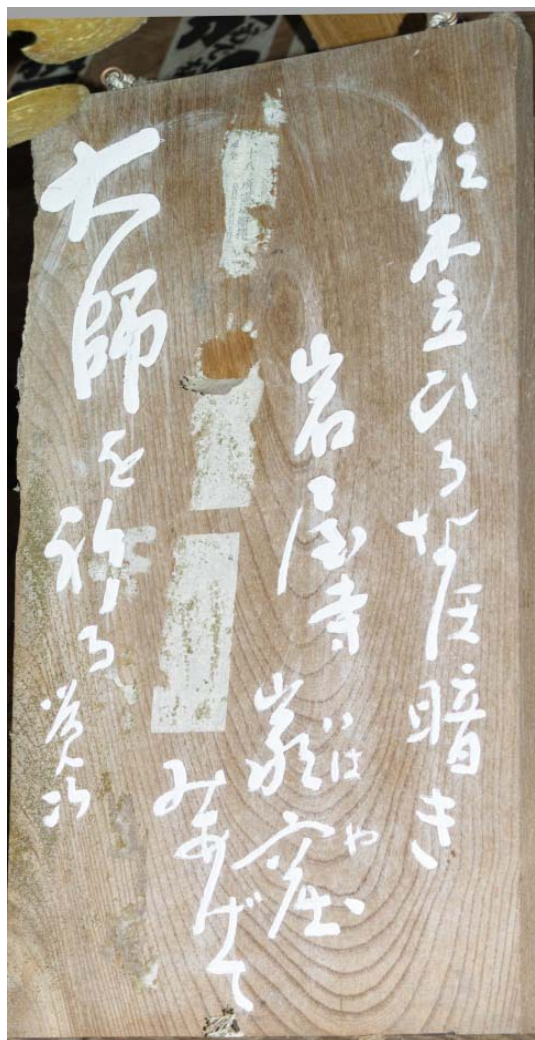 杉木立ひるなほ暗き
岩屋寺巌窟
いはや
みあげて
大師を祈る